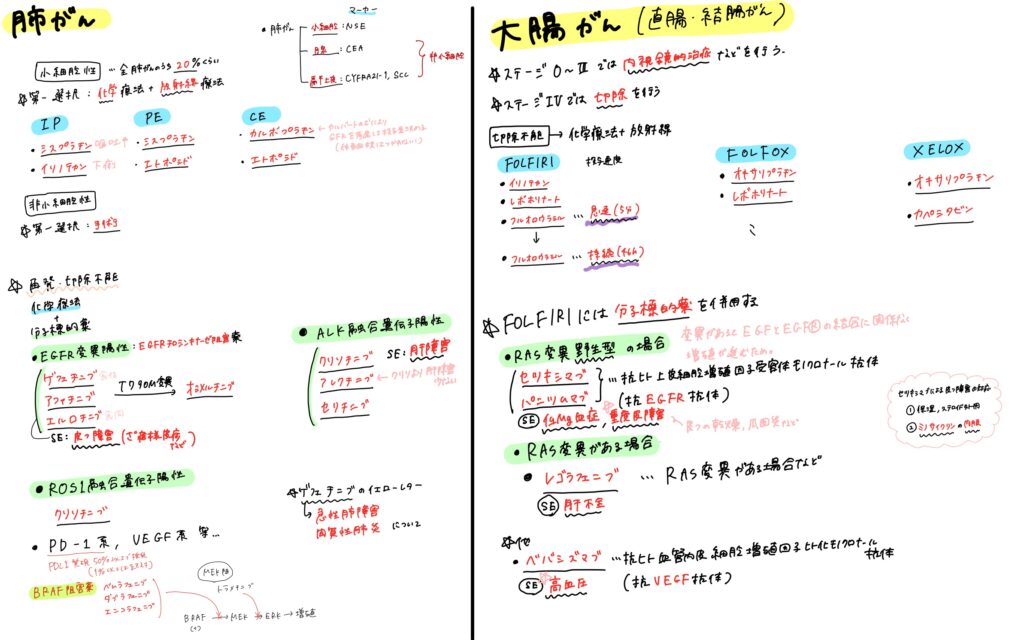 肺がん
マーカー
・肺がん
小細胞 : NSE
腺 : CEA
扁平上皮 : CYFRA21-1, SCC
非小細胞
小細胞性 … 全肺がんのうち 20%くらい
☆第一選択 : 化学療法 + 放射線療法
IP
・シスプラチン
・イリノテカン 下痢
PE
・シスプラチン
・エトポシド
CE
・カルボプラチン
・エトポシド
非小細胞性
☆第一選択 : 手術
☆再発・切除不能
化学療法
+
分子標的薬
・EGFR変異陽性 : EGFRチロシンキナーゼ阻害薬
ゲフィチニブ
アファチニブ
エルロチニブ
T790M変異
オシメルチニブ
SE : 皮フ障害 (ざ瘡様皮疹など)
・ALK融合遺伝子陽性
クリゾチニブ
アレクチニブ
セリチニブ
SE : 肝障害
・ROS1融合遺伝子陽性
クリゾチニブ
☆ゲフィチニブのイエローレター
急性肺障害
間質性肺炎 について
・PD-1系, VEGF系 等…
BRAF阻害薬
ベムラフェニブ
ダブラフェニブ
エンコラフェニブ
MEK阻
トラメチニブ
BRAF → MEK → ERK → 増殖
(+)
大腸がん (直腸・結腸がん)
☆ステージ 0〜Ⅲ では 内視鏡的治療 などを行う.
☆ステージⅣでは 切除 を行う
切除不能 → 化学療法 + 放射線
FOLFIRI
投与速度
・イリノテカン
・レボホリナート
・フルオロウラシル … 急速(5分)
↓
・フルオロウラシル … 持続(46h)
FOLFOX
・オキサリプラチン
・レボホリナート
XELOX
・オキサリプラチン
・カペシタビン
☆FOLFIRIには 分子標的薬 を併用する
変異があるとEGFとEGFRの結合に関係なく
増殖が進むため。
・RAS変異野生型 の場合
セツキシマブ
パニツムマブ
…抗ヒト上皮細胞増殖因子受容体モノクロナール抗体
(抗EGFR抗体)
SE 低Mg血症, 重度皮障害
皮フの乾燥, 爪囲炎など
セツキシマブによる皮フ障害の対応
① 保湿, ステロイド外用
② ミノサイクリンの内服
・RAS変異がある場合
・レゴラフェニブ … RAS変異がある場合など
SE 肝不全
☆他
・ベバシズマブ …抗ヒト血管内皮細胞増殖因子ヒト化モノクロナール抗体
(抗VEGF抗体)
SE 高血圧